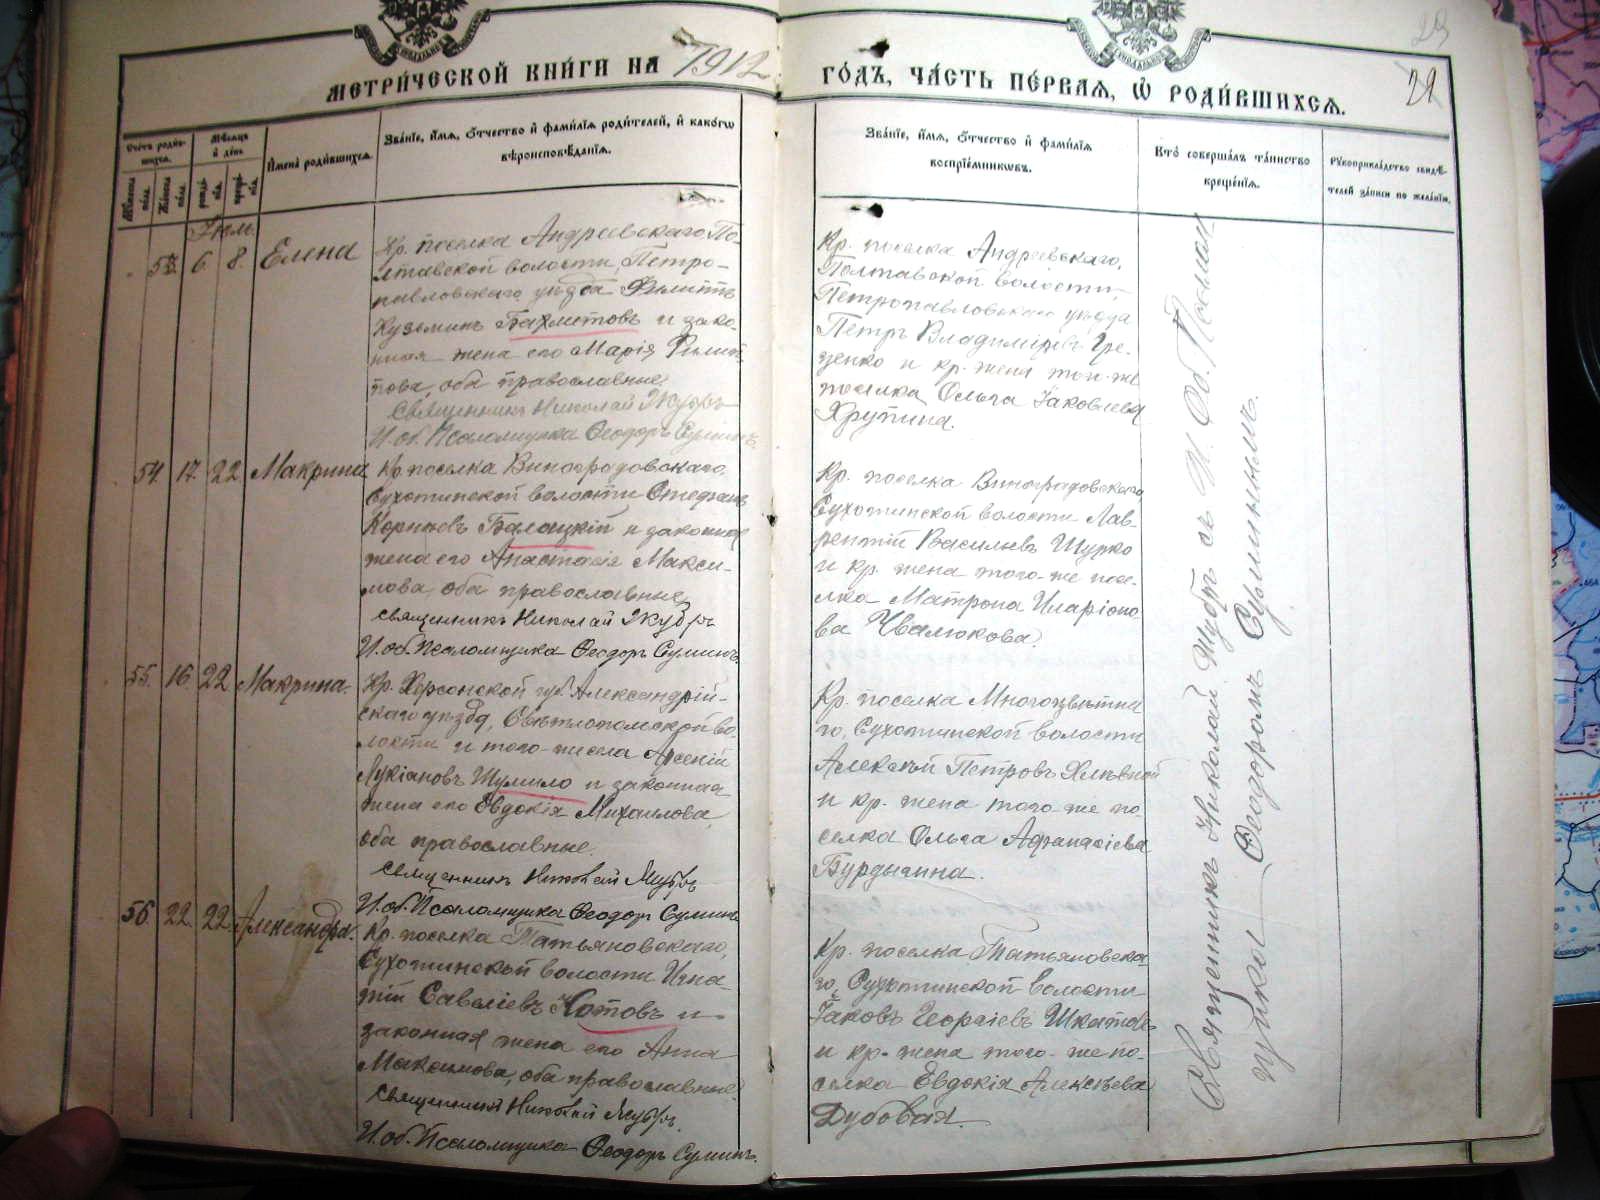 МЕТРИ́ЧЕСКОЙ КНИ́ГИ НА 1912
ГО́ДЪ, ЧА́СТЬ ПЕ́РВАЯ, Ѿ РОДИ́ВШИХСЯ.
29
Сче́тъ роди́в-
шихся.
Мѣ́сяцъ
и҆ де́нь
И҆мена̀ роди́вшихся.
Зва́нїе, и҆́мя, ѻ҆́тчество и҆ фами́лїя роди́телей, и҆ како́гѡ
вѣроисповѣ́данїя.
Мꙋ́жеска
по́ла.
Же́нска
по́ла.
рожде́-
нїя.
креще́-
нїя.
Зва́нїе, и҆́мя, ѻ҆́тчество и҆ фами́лїя
воспрїе́мникѡвъ.
Кто̀ соверша́лъ та́инство
креще́нїя.
Рꙋкоприкла́дство свидѣ́-
телей за́писи по жела́нїю.
Іюль.
53. 6. 8. Елена
Кр. поселка Андреевскаго По-
лтавской волости, Петро-
павловскаго уѣзда Филиппъ
Кузьминъ Бахметовъ и зако-
нная жена его Марія Филип-
пова, оба православные.
Священникъ Николай Жубръ
И. об. Псаломщика Ѳеодоръ Суминъ.
Кр. поселка Андреевскаго,
Полтавской волости,
Петропавловскаго уѣзда
Петръ Владимировъ Гре-
ценко и кр. жена того-же
поселка Ольга Іаковлева
Хрупина.
54. 17. 22. Макрина
Кр. поселка Виноградовскаго,
Сухотинской волости Стефанъ
Корнѣевъ Балацкій и законная
жена его Анастасія Макси-
мова, оба православные.
Священникъ Николай Жубръ
И. об. Псаломщика Ѳеодоръ Суминъ.
Кр. поселка Виноградовскаго,
Сухотинской волости Лав-
рентій Васильевъ Шурко
и кр. жена того-же посе-
лка Матрона Иларіоно-
ва Чвалюкова.
55. 16. 22. Макрина.
Кр. Херсонской губ. Александрій-
скаго уѣзда, Свѣтлопольской во-
лости и того-же села Арсеній
Лукіановъ Шумило и законная
жена его Евдокія Михаилова,
оба православные.
Священникъ Николай Жубръ
И. об. Псаломщика Ѳеодоръ Суминъ
Кр. поселка Многоцвѣтна-
го, Сухотинской волости
Алексѣй Петровъ Хлѣвной
и кр. жена того-же по-
селка Ольга Афанасіева
Бурдыгина.
56. 22. 22. Александра.
Кр. поселка Татьяновскаго,
Сухотинской волости Игна-
тій Савеліевъ Котовъ и
законная жена его Анна
Максимова, оба православные.
Священникъ Николай Жубръ.
И. об. Псаломщика Ѳеодоръ Суминъ.
Кр. поселка Татьяновска-
го, Сухотинской волости
Іаковъ Георгіевъ
и кр. жена того-же по-
селка Евдокія Алексѣева
Дубовая.
Священникъ Николай Жубръ съ И. Об. Псалом-
щика Ѳеодоромъ Суминымъ.